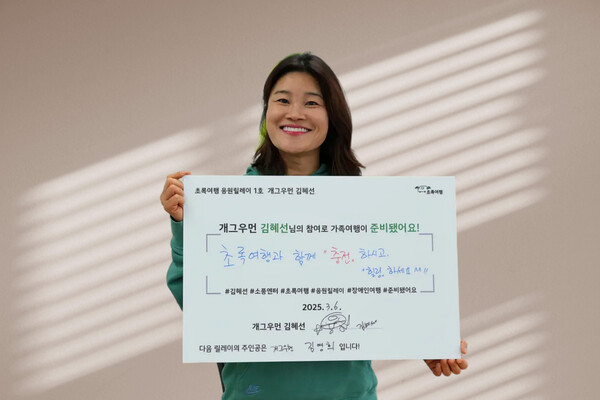 초록여행 응원릴레이 1호 개그우먼 김혜선
초록여행
개그우먼 김혜선님의 참여로 가족여행이 준비됐어요!
초록여행과 함께 "충전, 하시고
"힐링, 하세요 ^^"
#김혜선 #소풍엔터 #초록여행 #응원릴레이 #장애인여행 #준비됐어요
2025. 3. 6.
개그우먼 김혜선
다음 릴레이의 주인공은 개그우먼 김영희 입니다!